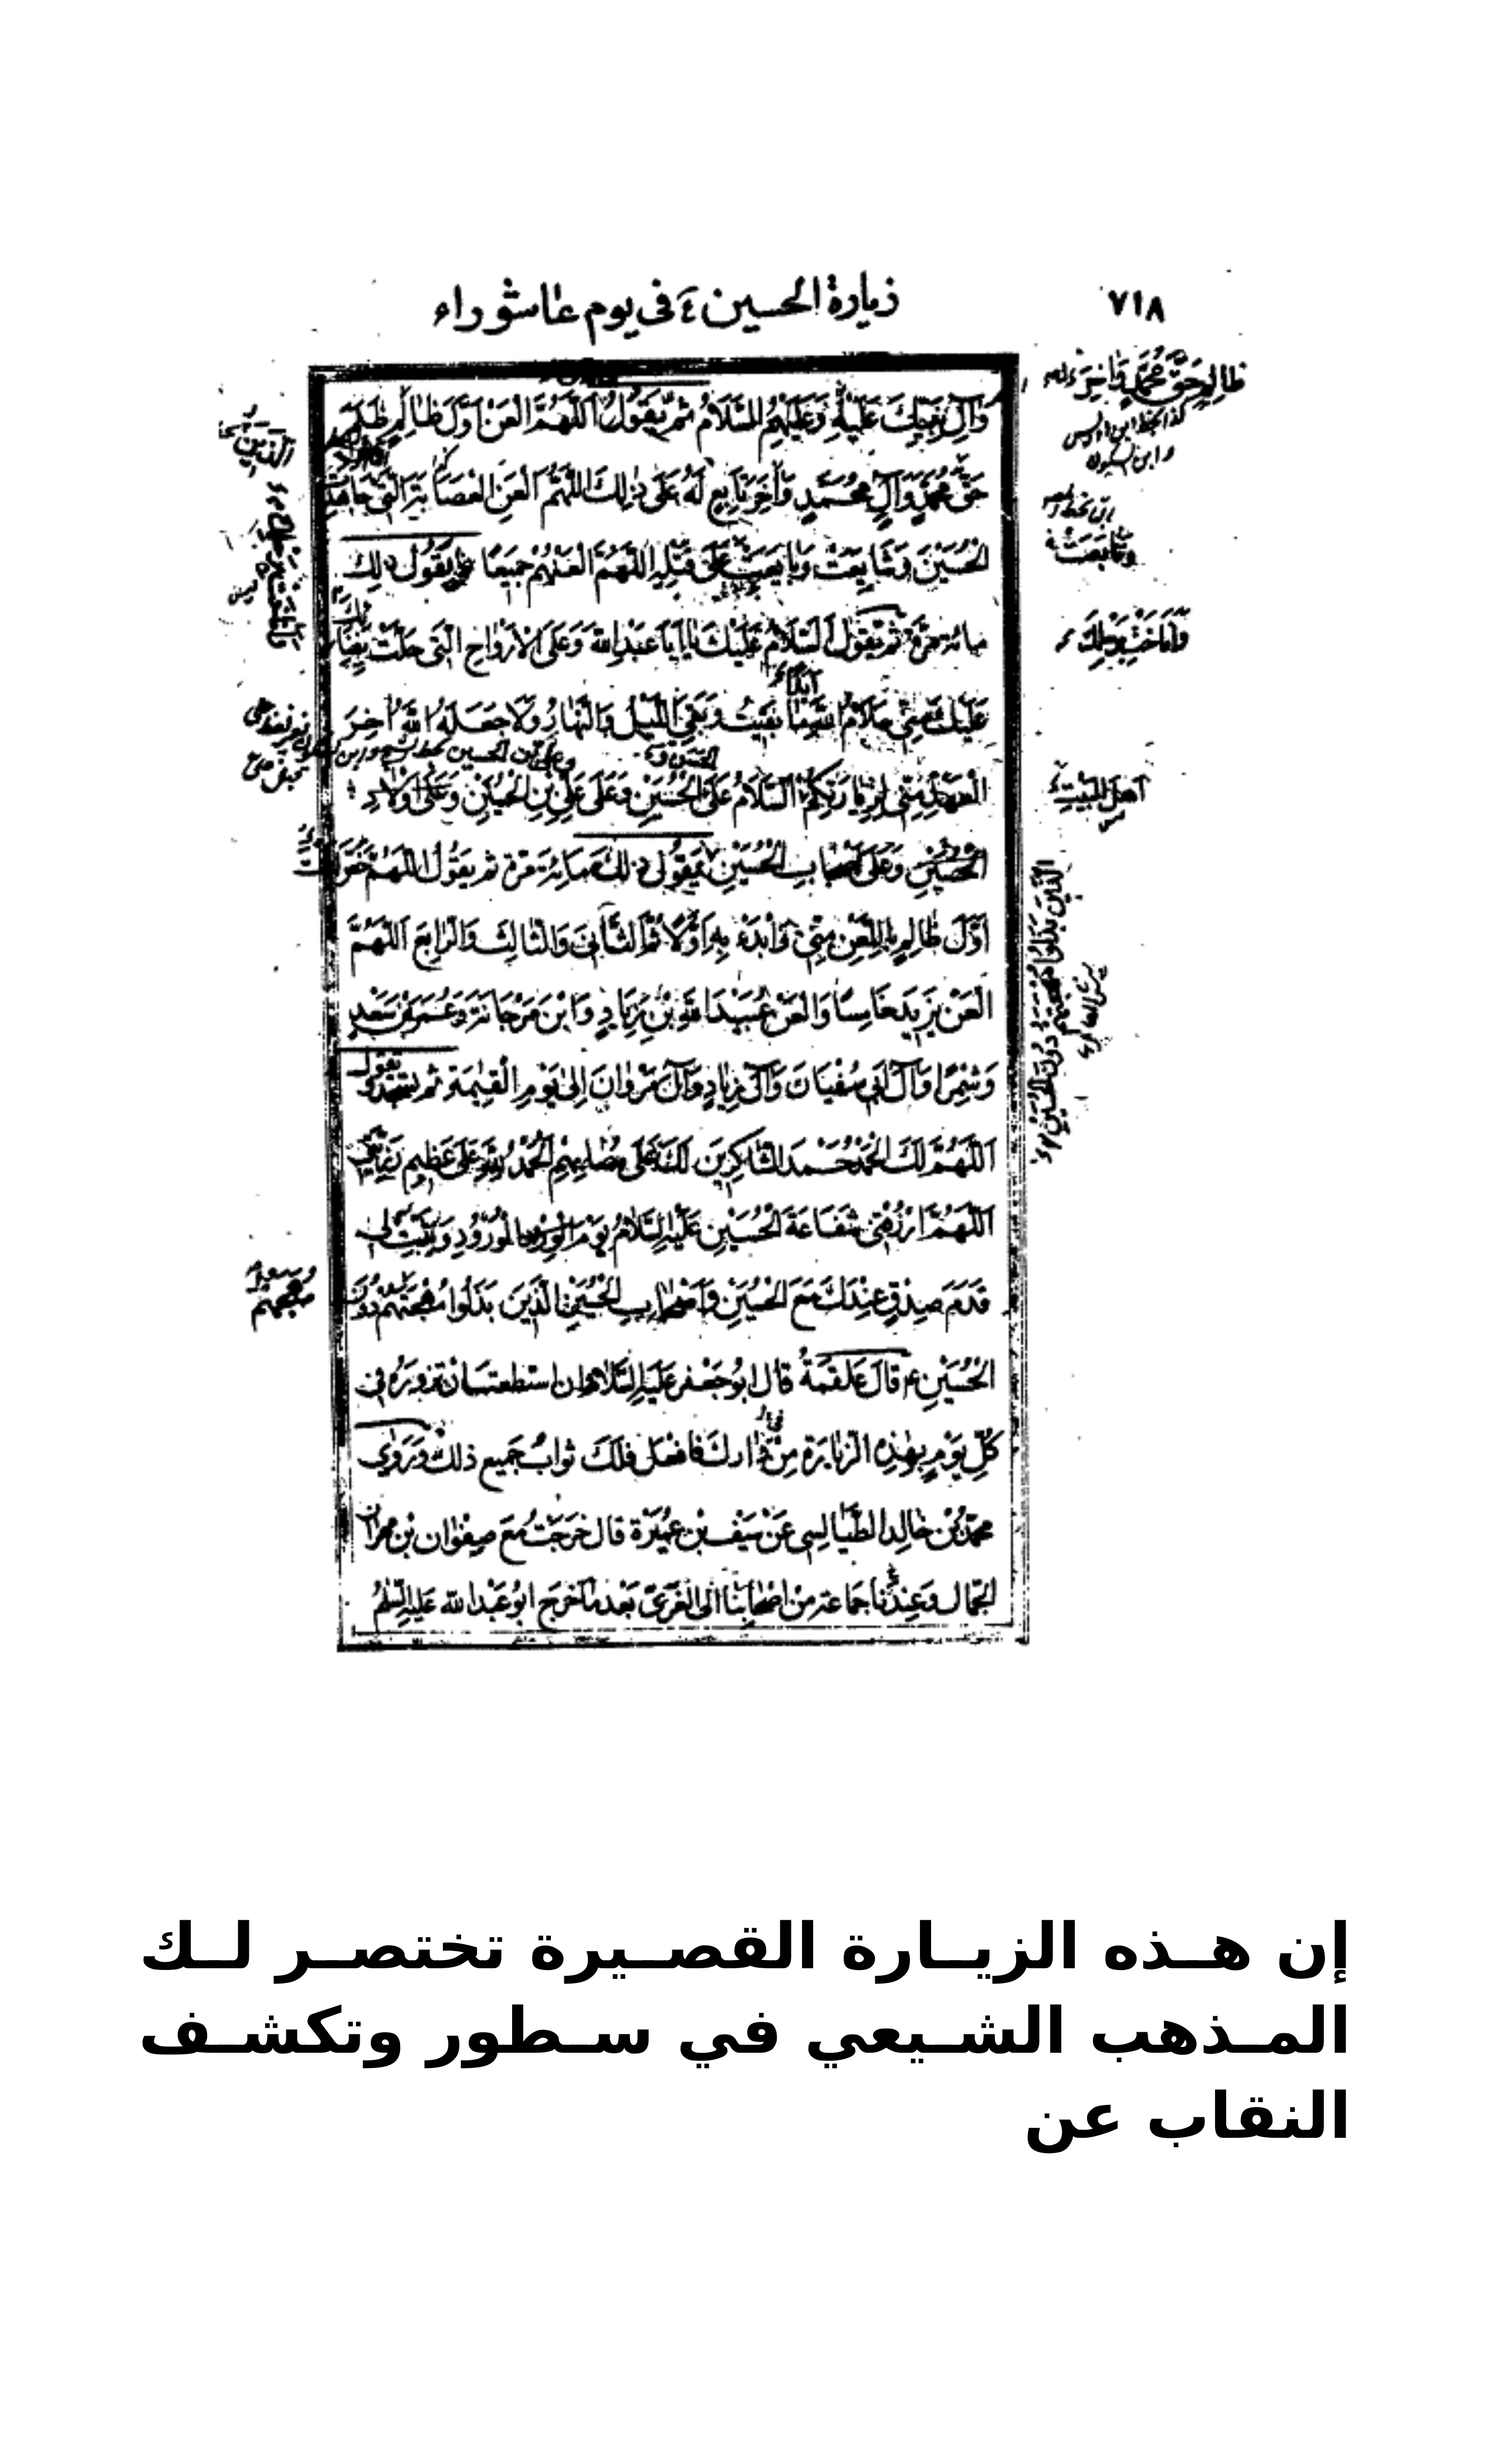 ٧١٨
زيارة الحسين ع في يوم عاشوراء
وَآلِ نَبِيِّكَ عَلَيْهِ وَعَلَيْهِمُ السَّلَامُ ثُمَّ يَقُولُ اَللّهُمَّ الْعَنْ اَوَّلَ ظَالِمٍ ظَلَمَ
حَقَّ مُحَمَّدٍ وَآلِ مُحَمَّدٍ وَآخِرَ تَابِعٍ لَهُ عَلَى ذلِكَ اللّهُمَّ الْعَنِ الْعِصَابَةَ الَّتِي جَاهَدَتِ
الْحُسَيْنَ وَشَايَعَتْ وَبَايَعَتْ عَلَى قَتْلِهِ اللّهُمَّ الْعَنْهُمْ جَمِيعًا يَقُولُ ذلِكَ
مِائَةَ مَرَّةٍ ثُمَّ يَقُولُ اَلسَّلَامُ عَلَيْكَ يَا اَبَا عَبْدِ اللّهِ وَعَلَى الْاَرْوَاحِ الَّتِي حَلَّتْ بِفِنَائِكَ
عَلَيْكَ مِنِّي سَلَامُ اللّهِ مَا بَقِيتُ وَبَقِيَ اللَّيْلُ وَالنَّهَارُ وَلَا جَعَلَهُ اللّهُ آخِرَ
الْعَهْدِ مِنِّي لِزِيَارَتِكُمْ اَلسَّلَامُ عَلَى الْحُسَيْنِ وَعَلَى عَلِيِّ بْنِ الْحُسَيْنِ وَعَلَى اَوْلَادِ
الْحُسَيْنِ وَعَلَى اَصْحَابِ الْحُسَيْنِ يَقُولُ ذلِكَ مِائَةَ مَرَّةٍ ثم يَقُولُ اَللّهُمَّ خُصَّ اَنْتَ
اَوَّلَ ظَالِمٍ بِاللَّعْنِ مِنِّي وَابْدَءْ بِهِ اَوَّلًا ثُمَّ الثَّانِيَ وَالثَّالِثَ وَالرَّابِعَ اَللّهُمَّ
الْعَنْ يَزِيدَ خَامِسًا وَالْعَنْ عُبَيْدَ اللّهِ بْنَ زِيَادٍ وَابْنَ مَرْجَانَةَ وَعُمَرَ بْنَ سَعْدٍ
وَشِمْرًا وَآلَ اَبِي سُفْيَانَ وَآلَ زِيَادٍ وَآلَ مَرْوَانَ اِلىٰ يَوْمِ الْقِيٰمَةِ ثم تسجد وتقول
اَللّهُمَّ لَكَ الْحَمْدُ حَمْدَ الشَّاكِرِينَ لَكَ عَلَى مُصَابِهِمْ اَلْحَمْدُ لِلّهِ عَلَى عَظِيمِ رَزِيَّتِي
اَللّهُمَّ ارْزُقْنِي شَفَاعَةَ الْحُسَيْنِ عَلَيْهِ السَّلَامُ يَوْمَ الْوُرُودِ وَثَبِّتْ لِي
قَدَمَ صِدْقٍ عِنْدَكَ مَعَ الْحُسَيْنِ وَاَصْحَابِ الْحُسَيْنِ الَّذِينَ بَذَلُوا مُهَجَهُمْ دُونَ
الْحُسَيْنِ ع قَالَ عَلْقَمَةُ قال ابُو جَعْفَر عَلَيْهِ السَّلَامُ ان استطعت ان تزورَهُ في
كُلِّ يَوْمٍ بِهٰذِهِ الزِّيَارَةِ مِنْ دَارِكَ فَافْعَل فَلَكَ ثوابُ جَمِيع ذلك وَرَوىٰ
مُحَمَّدُ بْن خَالِد الطَّيَالِسِي عَنْ سَيْف بْن عَمِيرَة قال خَرَجْتُ مَعَ صفوَان بن مهران
الجَمَّال وَعِنْدَنَا جَمَاعة مِنْ اَصْحَابِنَا الى الغَرِيّ بَعْدَ مَا خَرَجَ ابُو عَبْد الله عَلَيْهِ السَّلَامُ
ظَالِمٍ حَقَّ مُحَمَّدٍ وَآخِرَ
كذا بخط ابن ادريس
وابن السكون
وَتَابَعَتْ
وَاَنَاخَتْ بِرَحْلِكَ
اَهْلَ الْبَيْتِ
الَّذِينَ بَذَلُوا مُهَجَهُمْ دُونَ الْحُسَيْنِ
الَّذِينَ
مُهَجَهُمْ
إن هذه الزيارة القصيرة تختصر لك
المذهب الشيعي في سطور وتكشف
النقاب عن